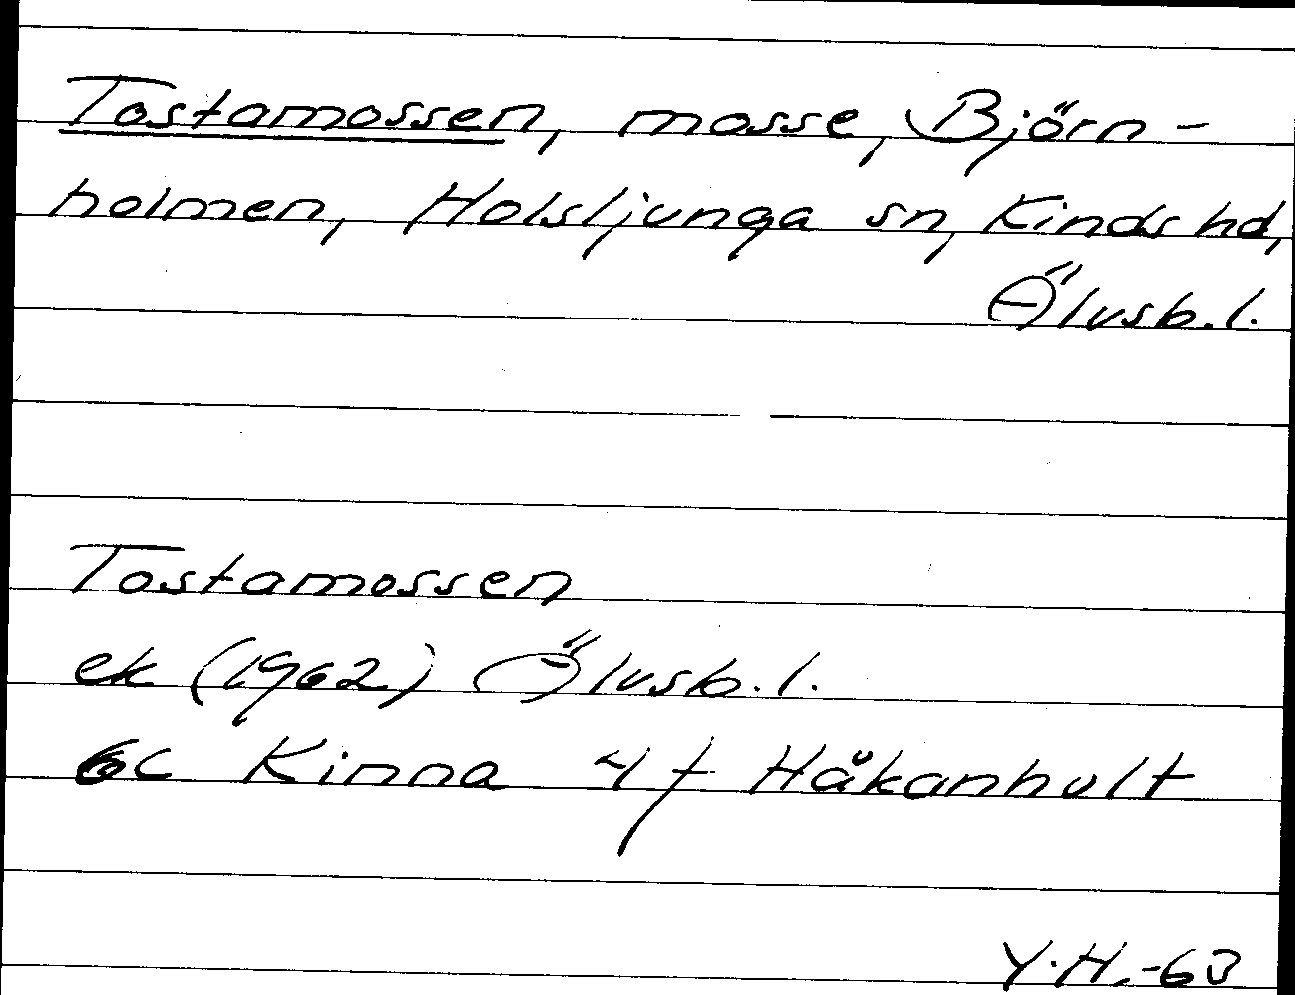 Tostamossen, mosse, Björn-
holmen, Holsljunga sn, Kinds hd,
Älvsb. l.
Tostamossen
ek (1962) Älvsb. l.
6c Kinna 4 f Håkanhult
Y.H.-63